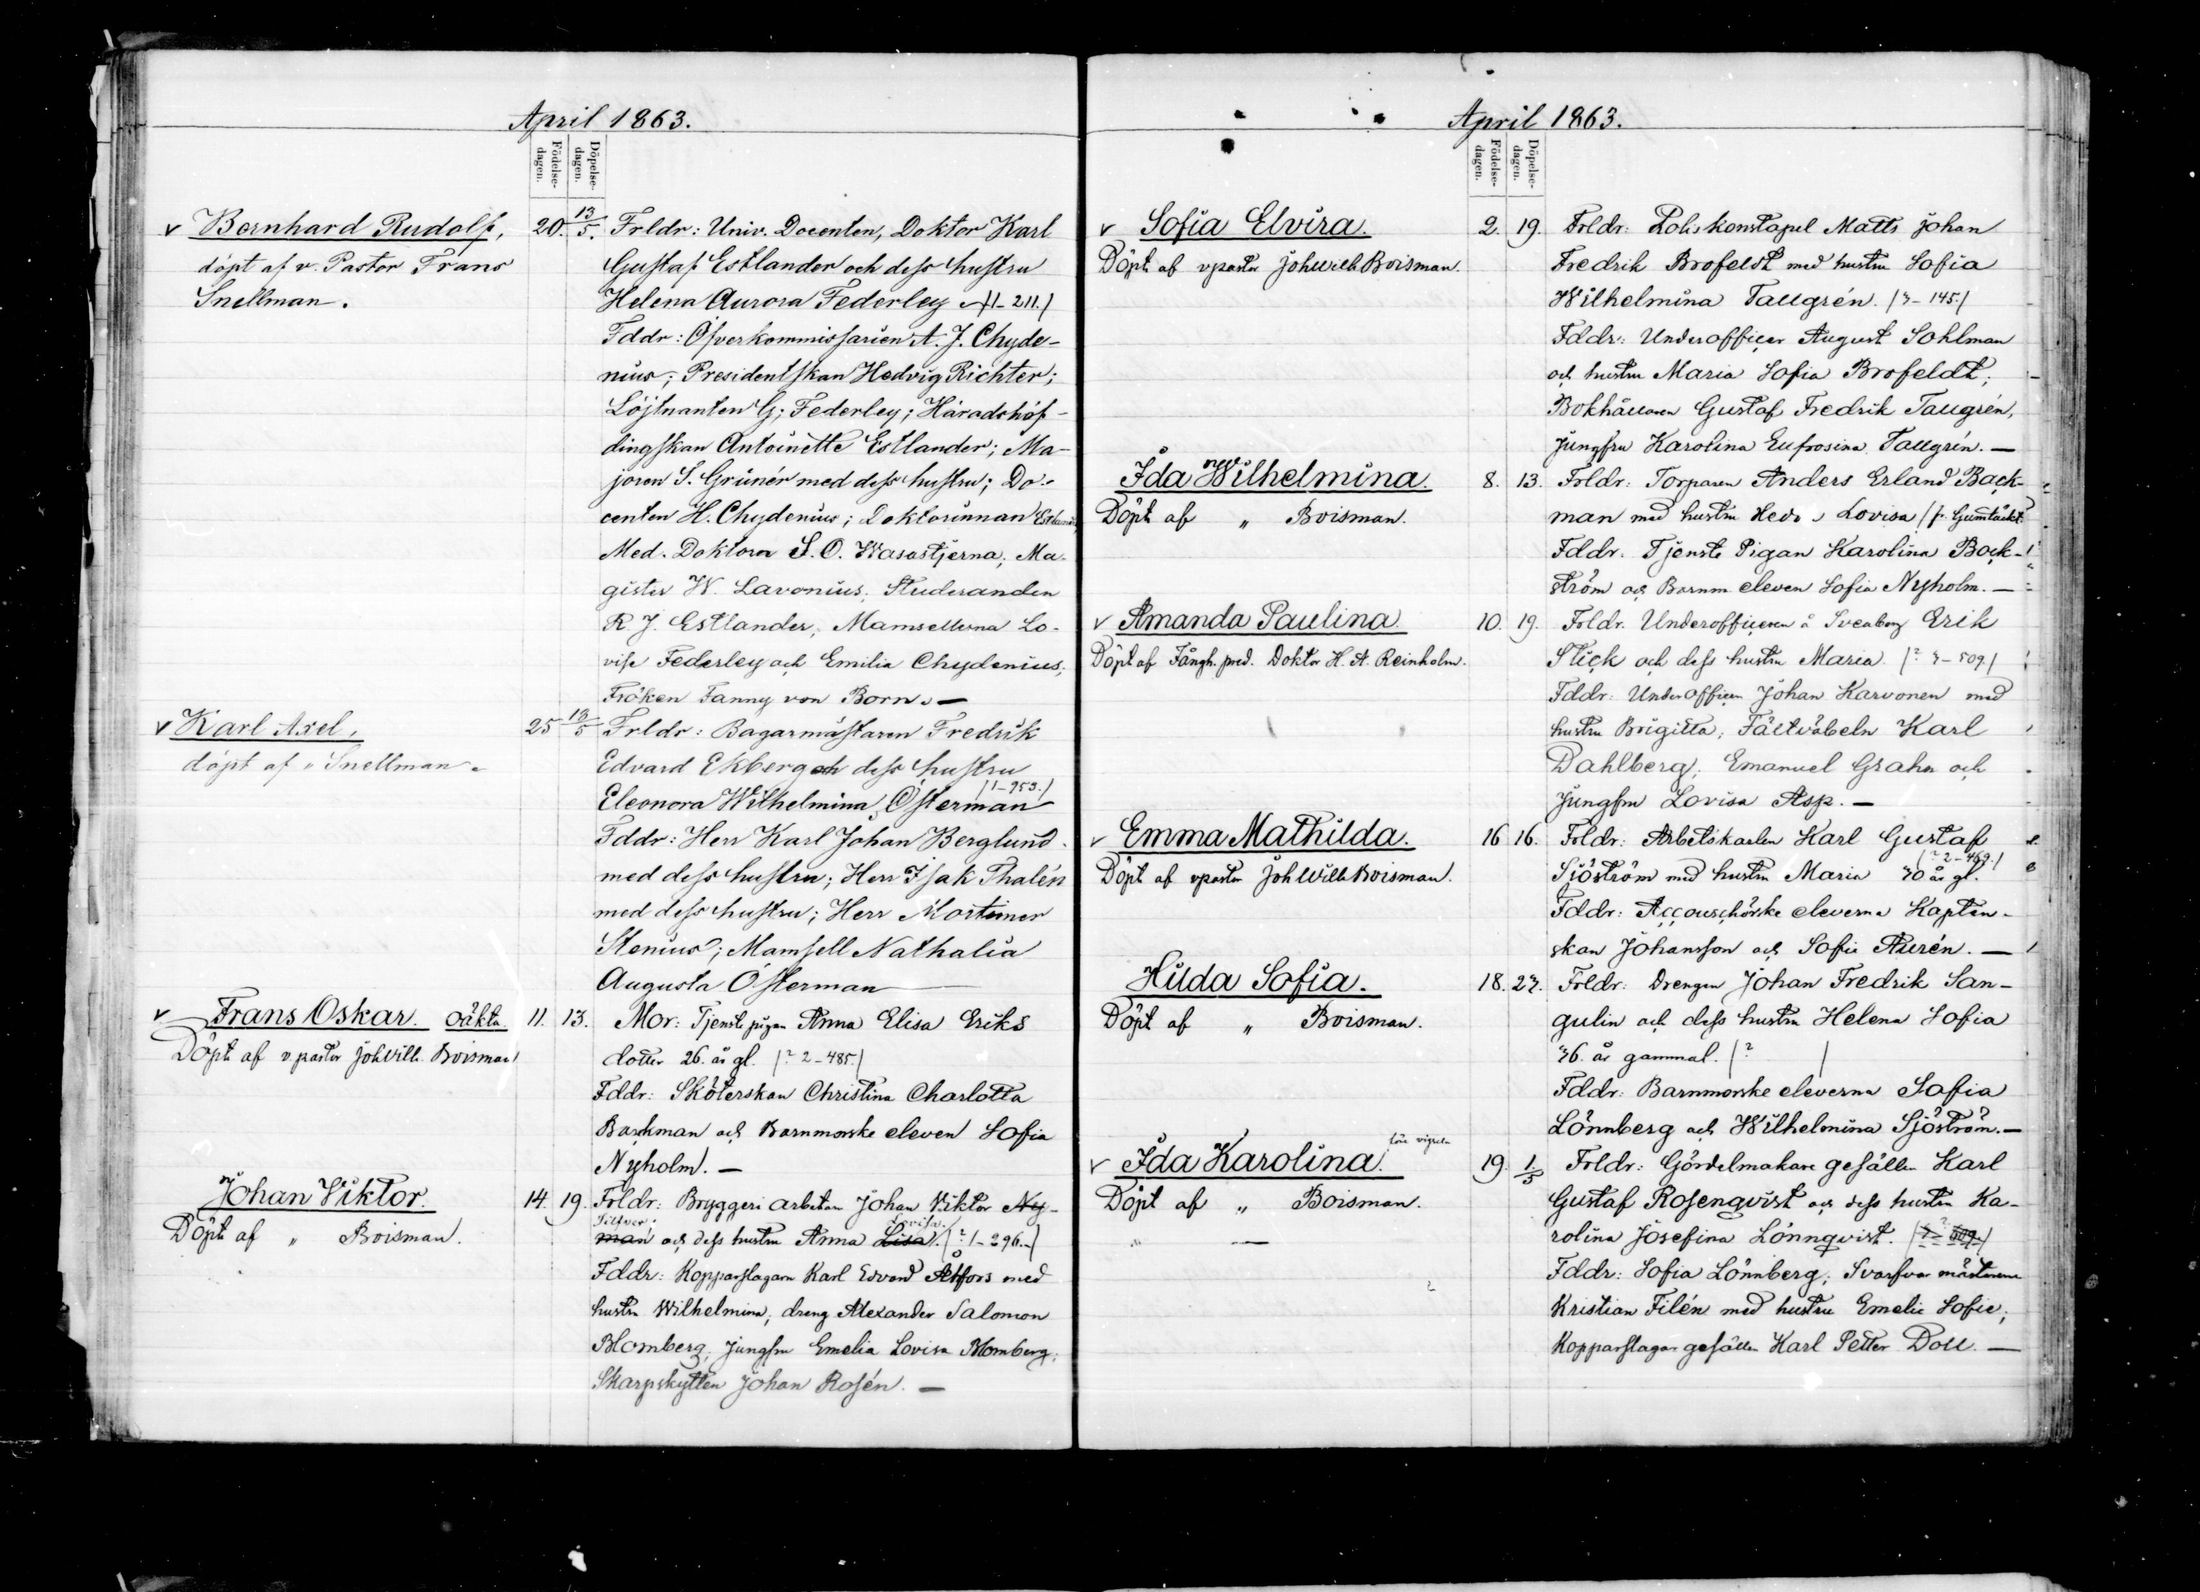 April 1863.
Födelse-dagen.
Döpelse-dagen.
v Bernhard Rudolf,
döpt af v. Pastor Frans
Snellman.
20. 13/5.
Frldr: Univ. Docenten, Doktor Karl
Gustaf Estlander och dess hustru
Helena Aurora Federley (1-211.)
Fddr: Öfverkommissarien A. J. Chyde-
nius; Presidentskan Hedvig Richter;
Löjtnanten G; Federley; Häradshöf-
dingskan Antoinette Estlander; Ma-
joren S. Grünér med dess hustru; Do-
centen H. Chydenius; Doktorinnan Estlander,
Med. Doktorn S. O. Wasastjerna; Ma-
gister W. Lavonius; Studeranden
R J. Estlander, Mamsellerna Lo-
vise Federley och Emilia Chydenius;
Fröken Fanny von Born. —
v Karl Axel,
döpt af " Snellman.
25 13/5
Frldr: Bagarmästaren Fredrik
Edvard Ekberg och dess hustru
(1-953.)
Eleonora Wilhelmina Österman
Fddr: Herr Karl Johan Berglund
med dess hustru; Herr Isak Thalén
med dess hustru; Herr Mortimer
Stenius; Mamsell Nathalia
Augusta Österman —
v Frans Oskar. oäkta
Döpt af v. pastor Joh Wilh. Boisman
11. 13.
Mor: Tjenste pigan Anna Elisa Eriks
dotter 26. år gl. (? 2-485.)
Fddr: Sköterskan Christina Charlotta
Backman och Barnmorske eleven Sofia
Nyholm. —
Johan Viktor.
Döpt af " Boisman.
14. 19.
Frldr: Bryggeri arbetaren Johan Viktor Ny-
man och dess hustru Anna Lisa. Lovisa. (? 1-296.)
Fddr: Kopparslagarn Karl Edvard Åhfors med
hustru Wilhelmina, dreng Alexander Salomon
Blomberg, Jungfru Emelia Lovisa Blomberg;
Skarpskytten Johan Rosén. —
April 1863.
Födelse-dagen.
Döpelse-dagen.
v Sofia Elvira.
Döpt af v pastor Joh Wilh Boisman.
2. 19.
Frldr: Poliskonstapel Matts Johan
Fredrik Brofeldt med hustru Sofia
Wilhelmina Tallgrén. (3-145.)
Fddr: Underofficer August Sohlman
och hustru Maria Sofia Brofeldt;
Bokhållaren Gustaf Fredrik Tallgrén,
Jungfru Karolina Eufrosina Tallgrén. —
Ida Wilhelmina.
Döpt af " Boisman.
8. 13.
Frldr: Torparen Anders Erland Back-
man med hustru Lovisa
Fddr. Tjenste Pigan Karolina Back-
ström och Barnm. eleven Sofia Nyholm. —
v Amanda Paulina
Döpt af Fångh. pred. Doktor H. A. Reinholm.
10. 19.
Frldr. Underofficeren å Sveaborg Erik
Stick och dess hustru Maria. (? 3-509)
Fddr: Underofficeren Johan Karvonen med
hustru Brigitta; Fältväbeln Karl
Dahlberg; Emanuel Grahn och
Jungfru Lovisa Asp. —
v Emma Mathilda.
Döpt af v pastor Joh Wilh Boisman.
16 16.
Frldr: Arbetskarlen Karl Gustaf
(? 2-469.)
Sjöström med hustru Maria 30 år gl.
Fddr: Accouschörske eleverna Kapten-
skan Johansson och Sofie Aurén. —
Hilda Sofia.
Döpt af " Boisman.
18. 23.
Frldr: Drengen Johan Fredrik San-
gulin och dess hustru Helena Sofia
36. år gammal. (? )
Fddr: Barnmorske eleverna Sofia
Lönnberg och Wilhelmina Sjöström. —
v Ida Karolina. före vigseln
Döpt af " Boisman.
19. 1/5
Frldr: Gördelmakare gesällen Karl
Gustaf Rosenqvist och dess hustru Ka-
rolina Josefina Lönnqvist.
Fddr: Sofia Lönnberg; Svarfvar mästaren
Kristian Filén med hustru Emelie Sofie;
Kopparslagar gesällen Karl Petter Doll. —